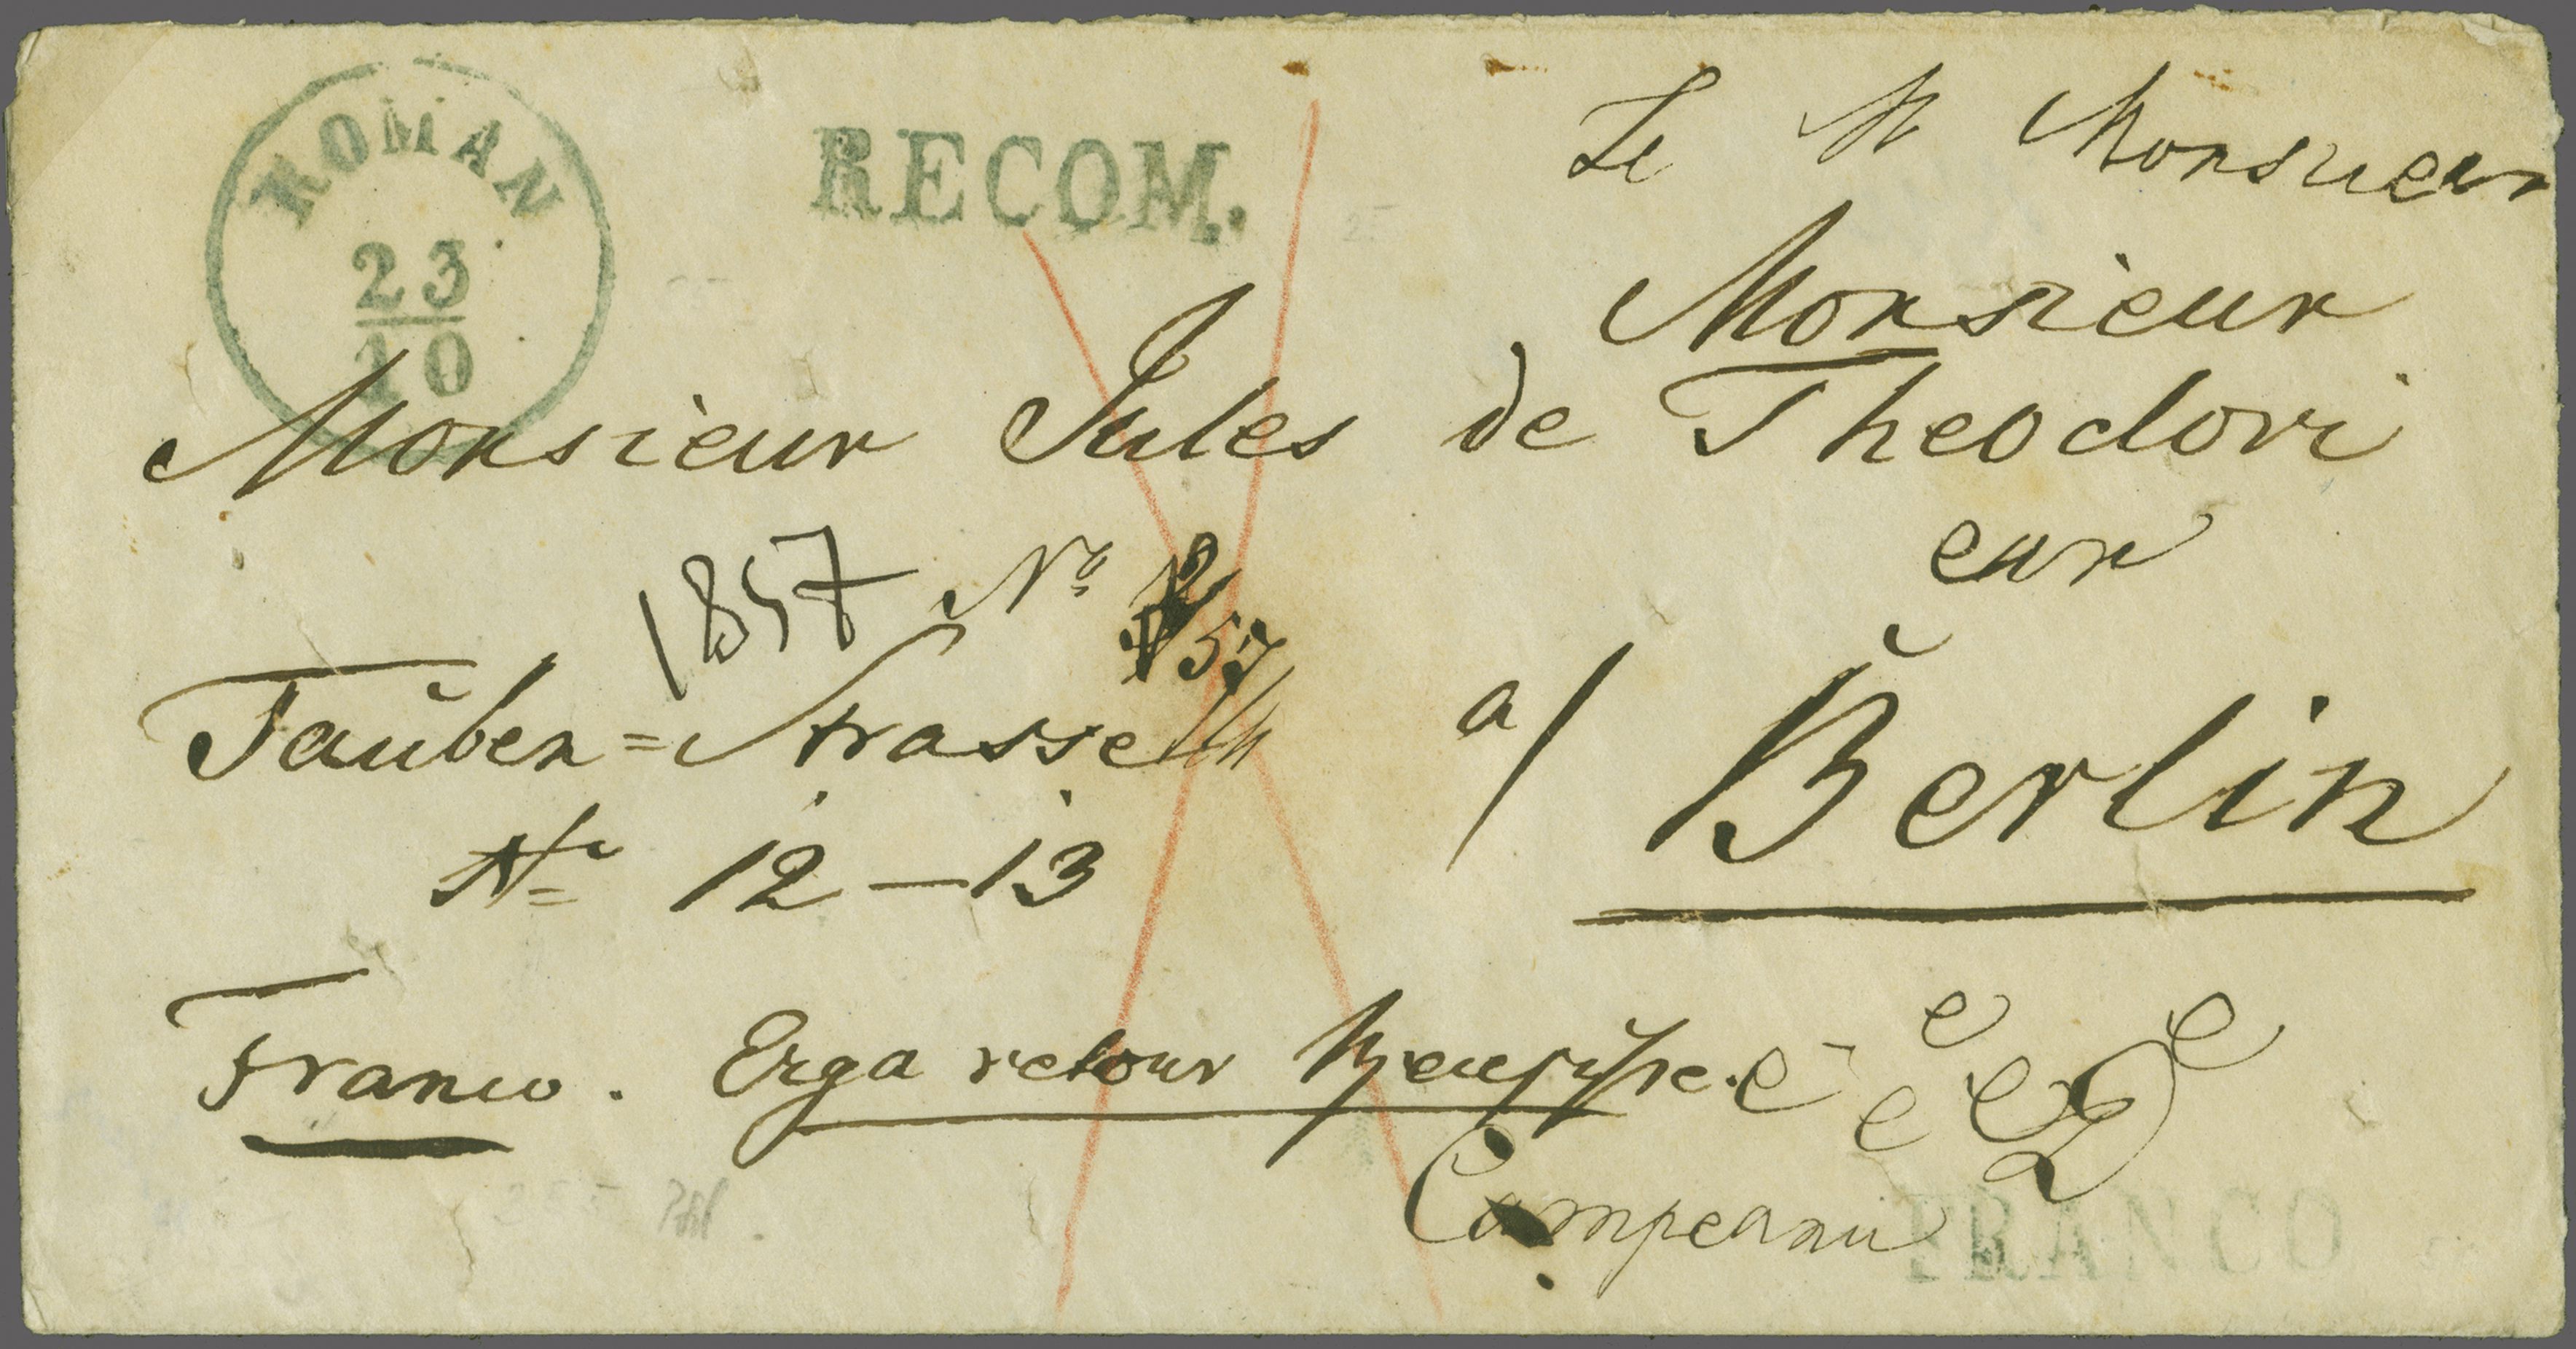 ROMAN
23
10
RECOM.
Le M Monsieur
Monsieur
Monsieur Jules de Theodori
eur
1857 No
57
Tauben=Strasse
a/ Berlin
No 12-13
Franco. Erga retour
e e e e
Campeanu
FRANCO